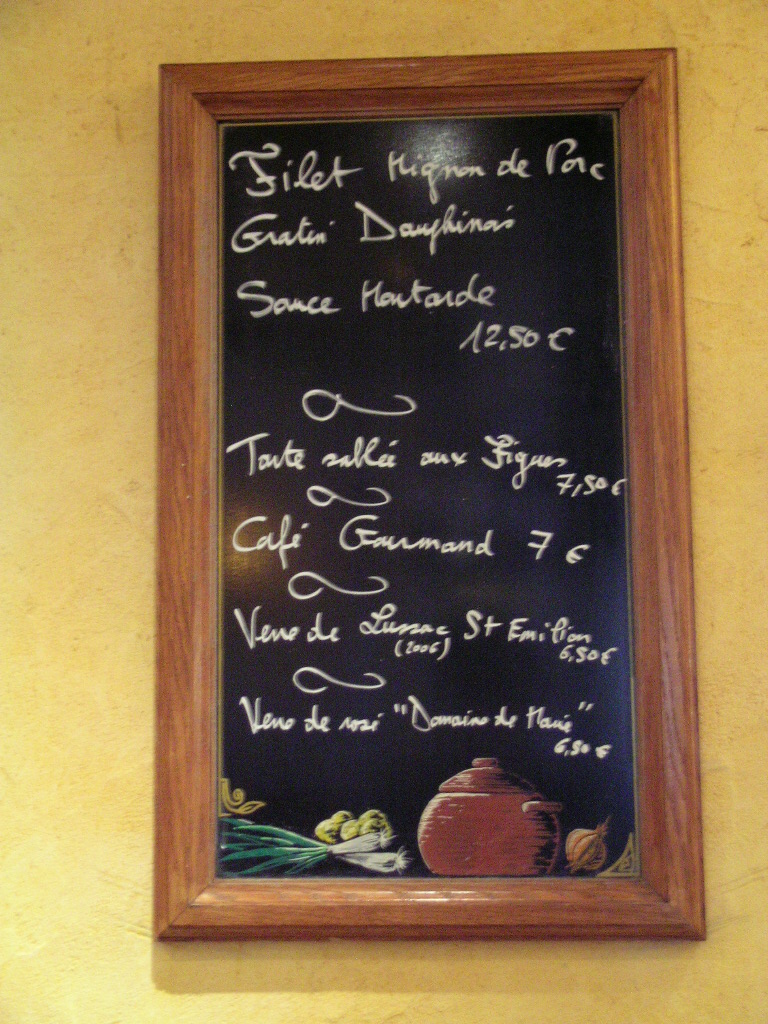 Filet Mignon de Porc
Gratin Dauphinois
Sauce Moutarde
12,50 €
Tarte sablée aux Figues
7,50 €
Café Gourmand 7 €
Verre de Lussac St Emilion
(2006) 6,50 €
Verre de rosé "Domaine de Marie"
6,50 €